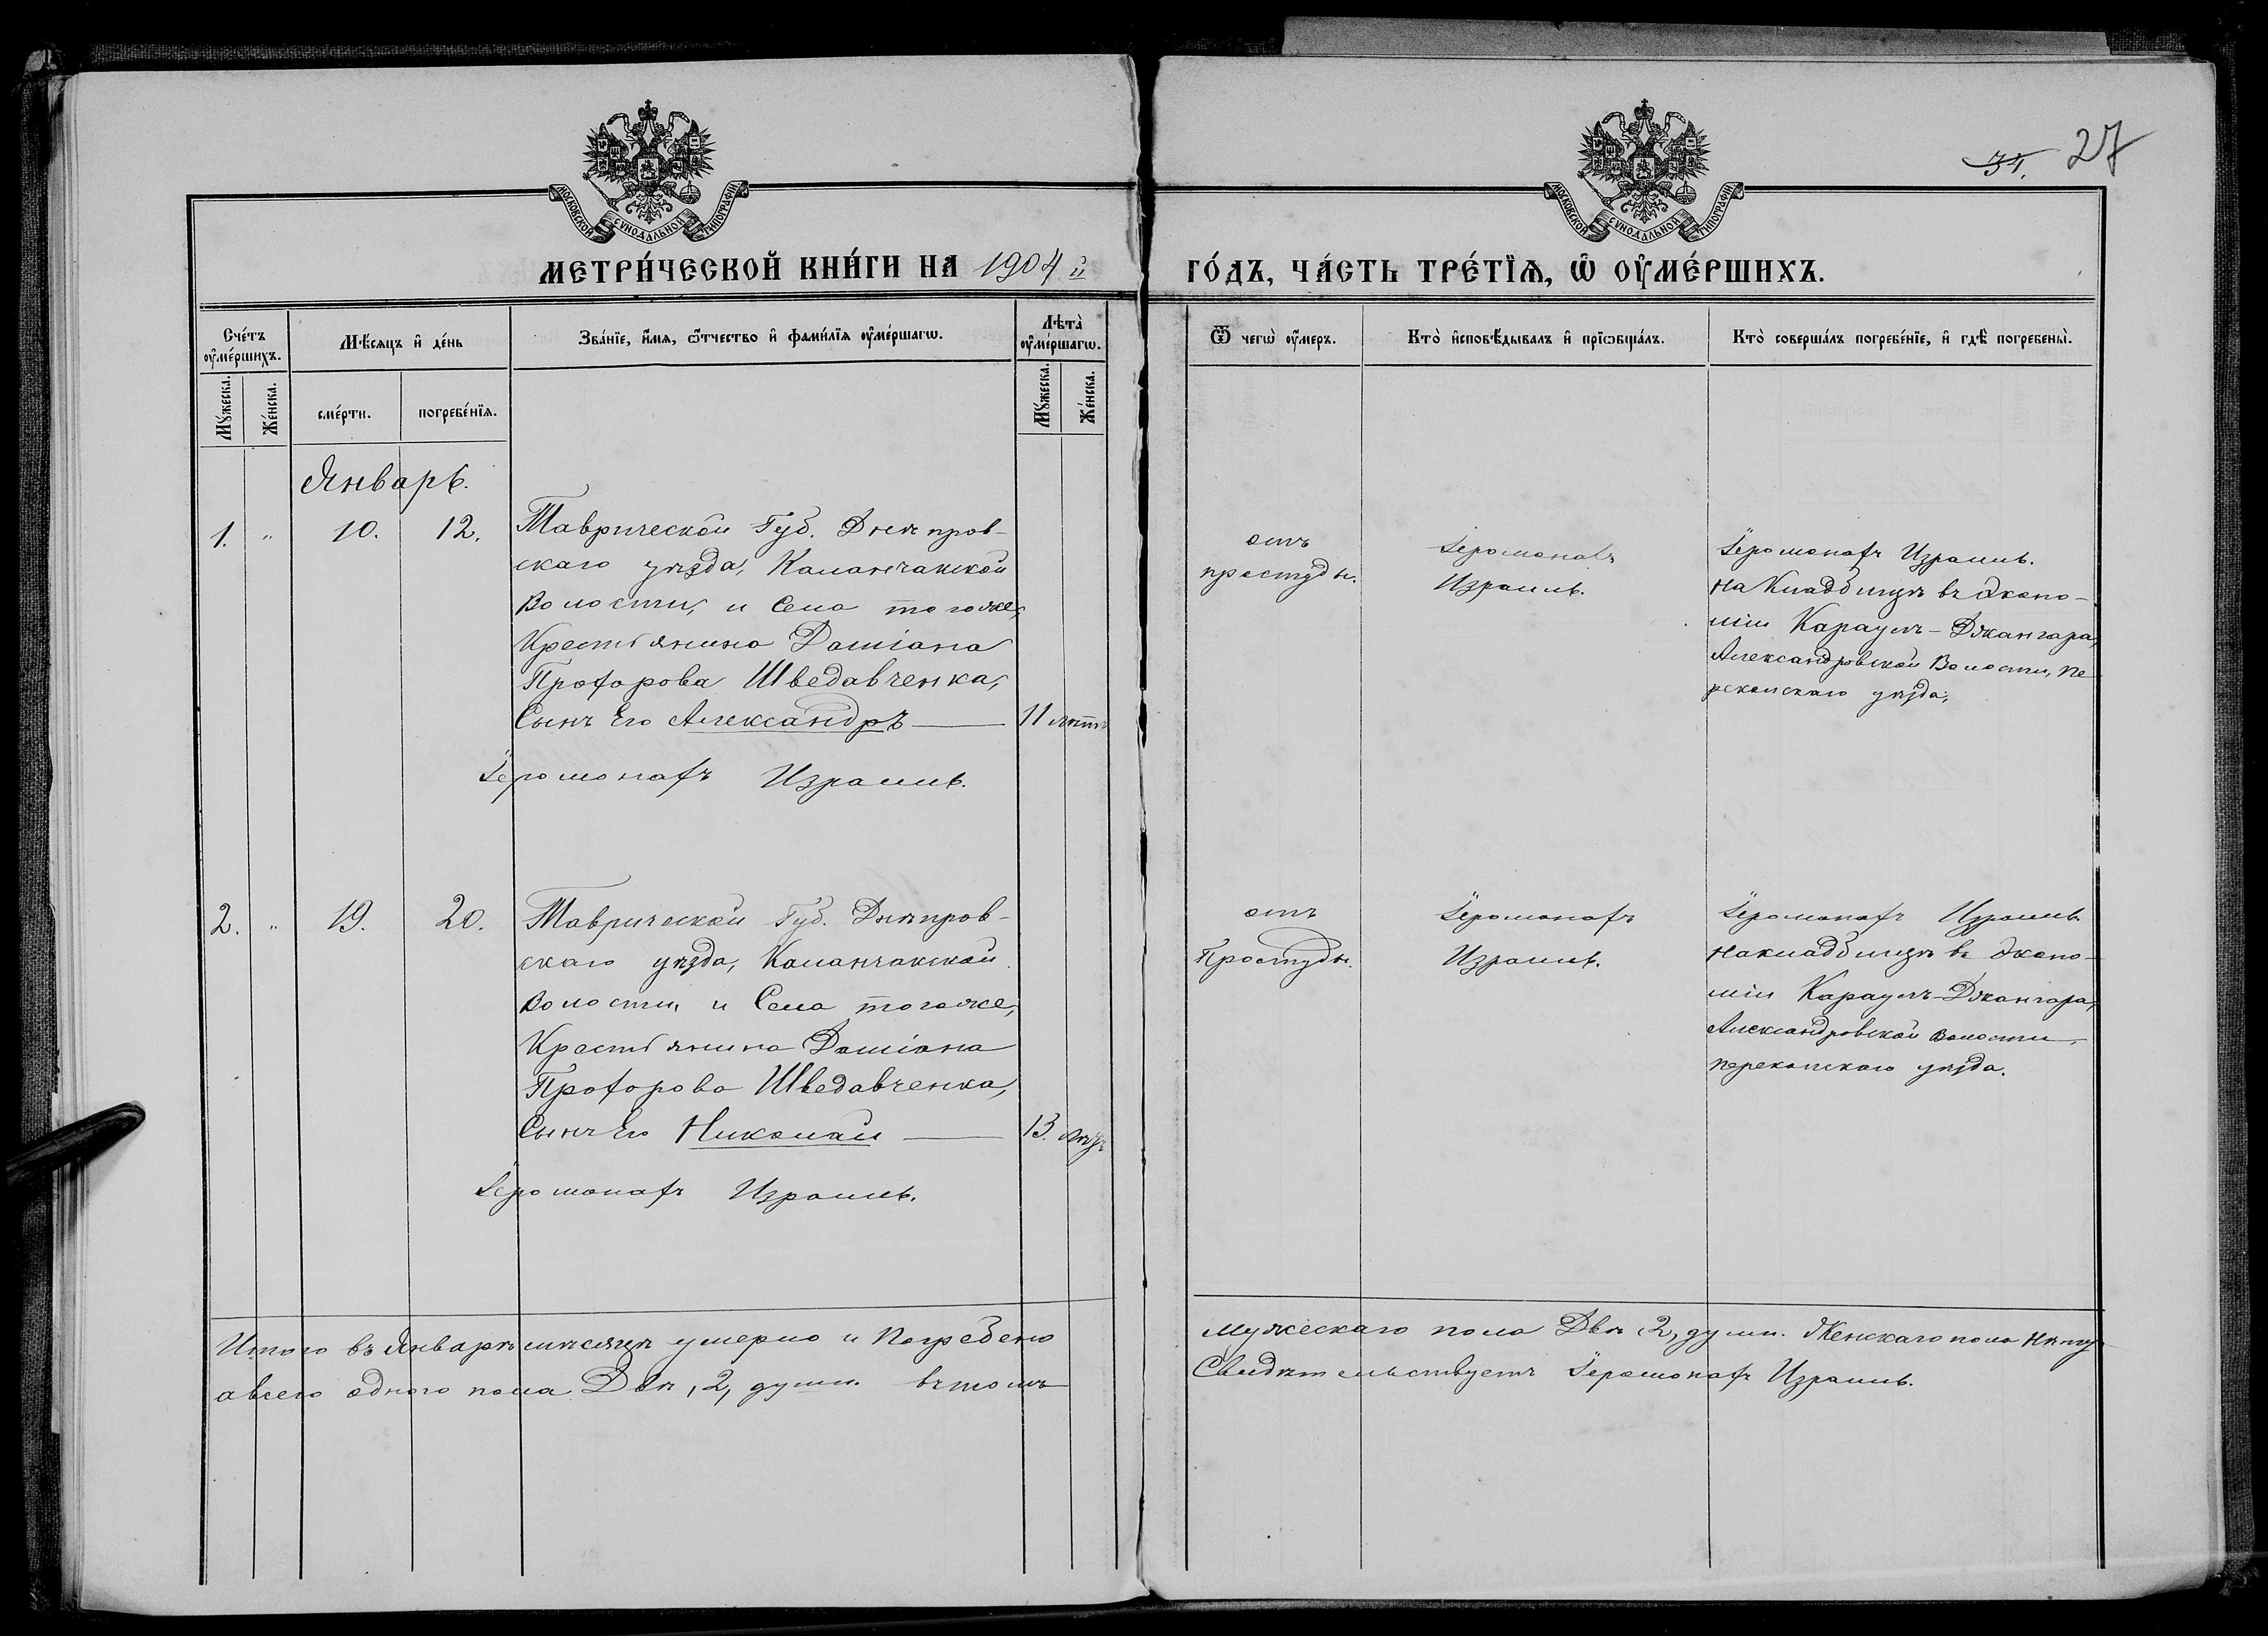 34. 27
МОСКОВСКОЙ СѴНОДАЛЬНОЙ ТИПОГРАФІИ
МОСКОВСКОЙ СѴНОДАЛЬНОЙ ТИПОГРАФІИ
МЕТРИ́ЧЕСКОЙ КНИ́ГИ НА 1904й
ГО́ДЪ, ЧА́СТЬ ТРЕ́ТЇѦ, Ѡ҆ ОУ҆МЕ́РШИХЪ.
Сче́тъ оу҆ме́ршихъ.
Мѣ́сяцъ и҆ де́нь
Зва́нїе, и҆́мѧ, ѻ҆́тчество и҆ фами́лїѧ оу҆ме́ршагѡ.
Лѣта̀ оу҆ме́ршагѡ.
Ѿ чегѡ̀ оу҆́меръ.
Кто̀ и҆сповѣ́дывалъ и҆ прїѡбща́лъ.
Кто̀ соверша́лъ погребе́нїе, и҆ гдѣ̀ погребены̀.
Мꙋ́жеска.
Же́нска.
сме́рти.
погребе́нїѧ.
Мꙋ́жеска.
Же́нска.
Январь.
1. " 10. 12.
Таврической Губ. Днѣпров-
скаго уѣзда, Каланчакской
Волости, и Села тогоже,
Крестьянина Даміана
Прохорова Шведавченка,
Сынъ Его Александръ — 11 лѣтъ
Іеромонахъ Израиль.
отъ
простуды.
Іеромонахъ
Израиль.
Іеромонахъ Израиль.
на Кладбищѣ въ эконо-
міи Караулъ-Джангара,
Александровской Волости, Пе
рекопскаго уѣзда,
2. " 19. 20.
Таврической Губ. Днѣпров-
скаго уѣзда, Каланчакской
Волости, и Села тогоже,
Крестьянина Даміана
Прохорова Шведавченка,
Сынъ Его Николай — 13. лѣтъ
Іеромонахъ Израиль.
отъ
Простуды.
Іеромонахъ
Израиль.
Іеромонахъ Израиль.
на кладбищѣ въ Эконо-
міи Караулъ-Джангара,
Александровской волости,
перекопскаго уѣзда.
Итого въ Январѣ мѣсяцѣ умерло и Погребено
авсего одного пола Двѣ, 2, души. въ томъ
Мужескаго пола Двѣ, 2, души. Женскаго пола Нѣту
Свидѣтельствуетъ Іеромонахъ Израиль.